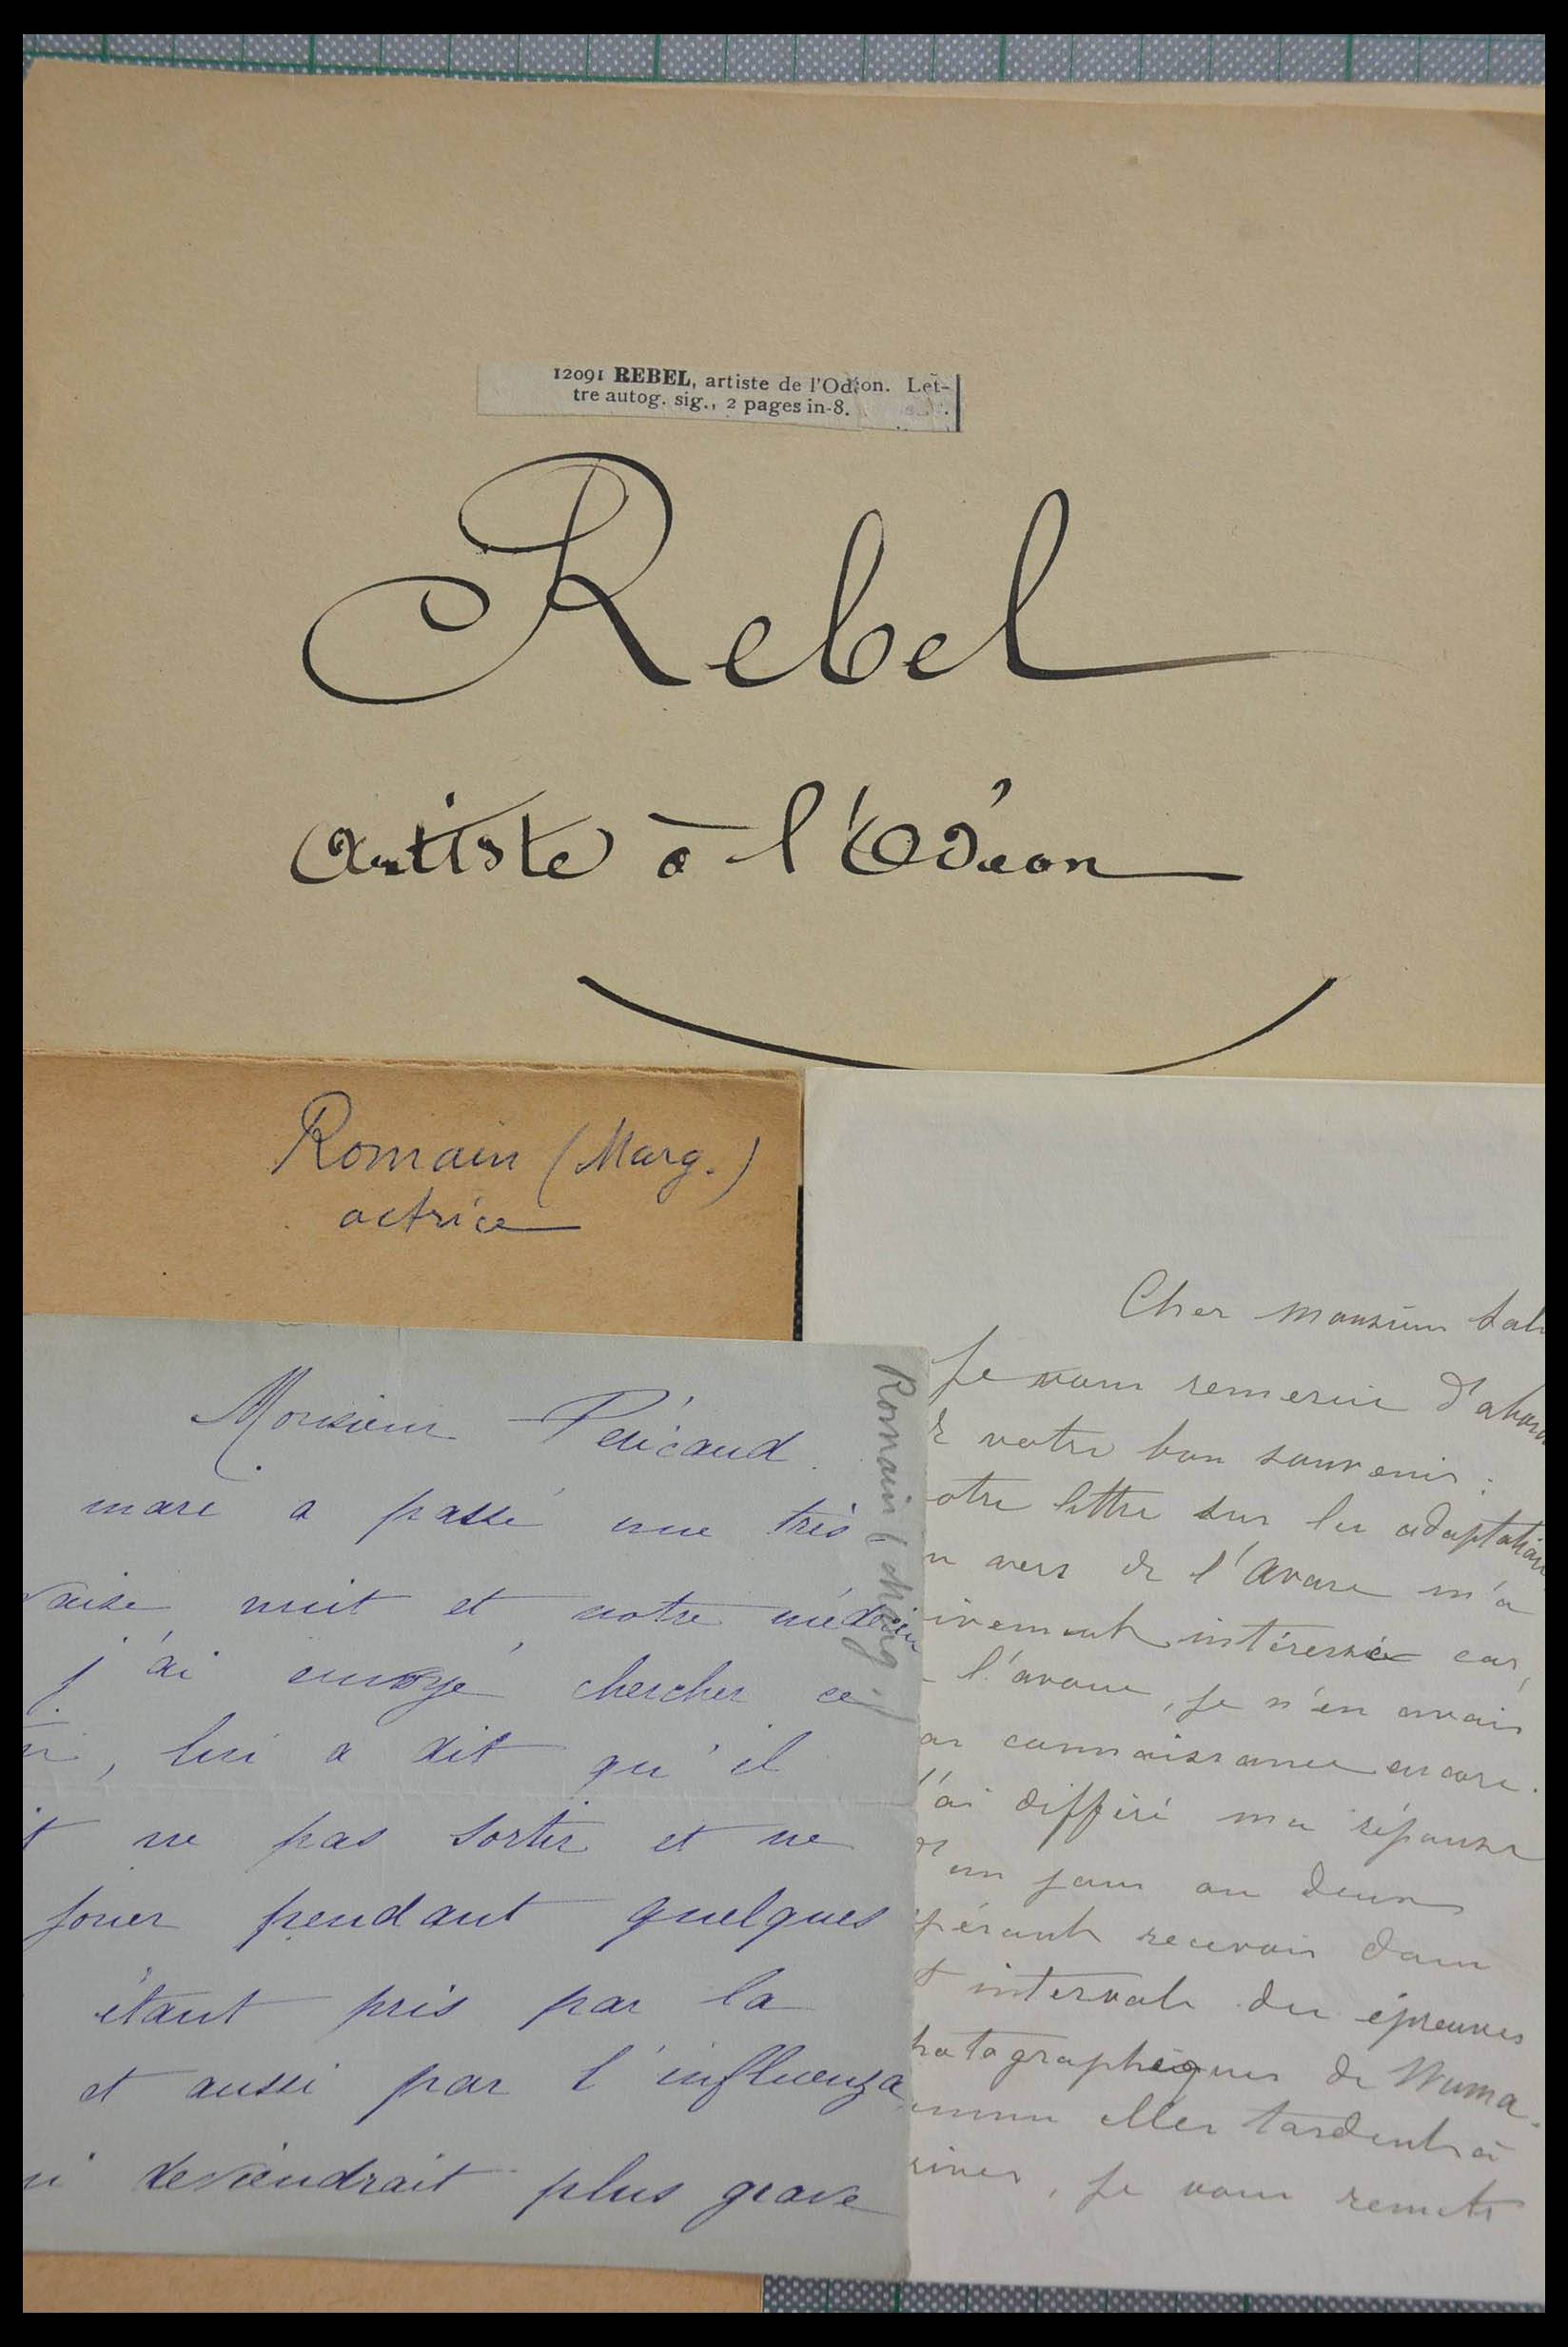 12091 REBEL, artiste de l'Odéon. Let-
tre autog. sig., 2 pages in-8.
Rebel
Artiste à l'Odéon
Romain (Marg.)
actrice
Monsieur Péricaud
mari a passé une très
vaise nuit et notre médecin
j'ai envoyé chercher ce
n, lui a dit qu'il
t ne pas sortir et ne
jouer pendant quelques
étant pris par la
et aussi par l'influenza
i deviendrait plus grave
Romain (Marg.)
Cher monsieur
Je vous remercie d'abord
de votre bon souvenir ;
otre lettre sur les adaptations
n vers de l'Avare m'a
ivement intéressée car,
l'avoue, je n'en avais
as connaissance encore.
J'ai différé ma réponse
d'un jour ou deux
spérant recevoir dans
t intervale des épreuves
hotographiques de Numa.
omme elles tardent à
river, je vous remets